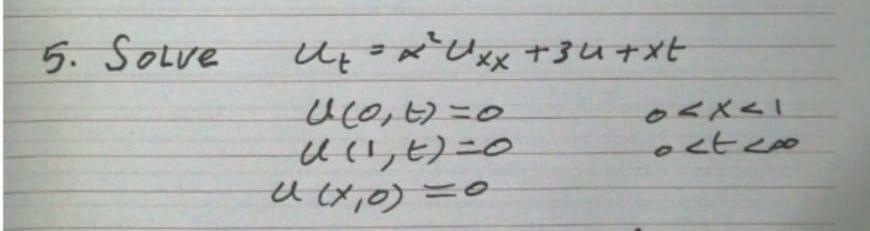 5. Solve u_t = α² u_xx + 3u + xt
u(0,t) = 0 0 < x < 1
u(1,t) = 0 0 < t < ∞
u(x,0) = 0